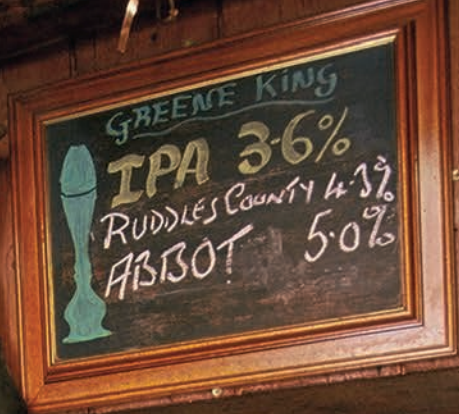 GREENE KING
IPA 3·6%
RUDDLES COUNTY 4·3%
ABBOT 5·0%